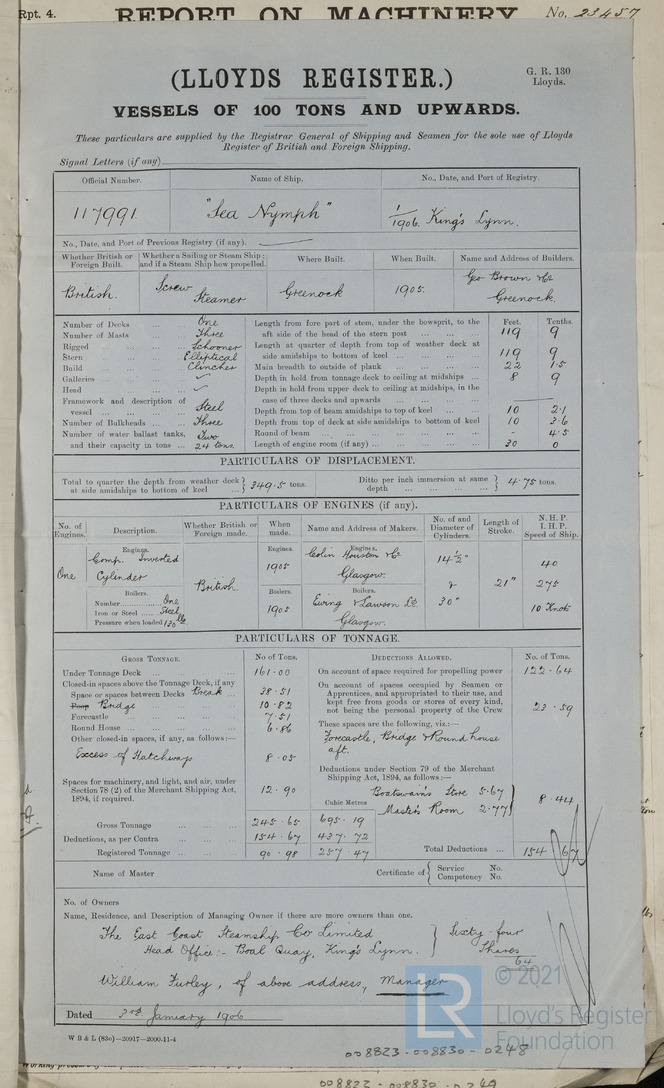 Rpt. 4. REPORT ON MACHINERY No. 23457
(LLOYDS REGISTER.)
G. R. 130
Lloyds.
VESSELS OF 100 TONS AND UPWARDS.
These particulars are supplied by the Registrar General of Shipping and Seamen for the sole use of Lloyds
Register of British and Foreign Shipping.
Signal Letters (if any)
Official Number. Name of Ship. No., Date, and Port of Registry.
117991. "Sea Nymph" 1/1906. King's Lynn.
No., Date, and Port of Previous Registry (if any).
Whether British or Foreign Built. Whether a Sailing or Steam Ship; and if a Steam Ship how propelled. Where Built. When Built. Name and Address of Builders.
British. Screw Steamer Greenock 1905. Geo Brown & Co Greenock.
Number of Decks ... One
Number of Masts ... Three
Rigged ... Schooner
Stern ... Elliptical
Build ... Clincher
Galleries ...
Head ...
Framework and description of vessel ... Steel
Number of Bulkheads ... Three
Number of water ballast tanks, and their capacity in tons ... Two 24 tons.
Feet. Tenths.
Length from fore part of stem, under the bowsprit, to the aft side of the head of the stern post ... 119 9
Length at quarter of depth from top of weather deck at side amidships to bottom of keel ... 119 9
Main breadth to outside of plank ... 22 1.5
Depth in hold from tonnage deck to ceiling at midships ... 8 9
Depth in hold from upper deck to ceiling at midships, in the case of three decks and upwards ...
Depth from top of beam amidships to top of keel ... 10 2.1
Depth from top of deck at side amidships to bottom of keel 10 3.6
Round of beam ... - 4.5
Length of engine room (if any) ... 30 0
PARTICULARS OF DISPLACEMENT.
Total to quarter the depth from weather deck at side amidships to bottom of keel ... 349.5 tons. Ditto per inch immersion at same depth ... 4.75 tons.
PARTICULARS OF ENGINES (if any).
No. of Engines. Description. Whether British or Foreign made. When made. Name and Address of Makers. No. of and Diameter of Cylinders. Length of Stroke. N. H. P. I. H. P. Speed of Ship.
Engines. Engines. Engines.
One Comp. Inverted Cylinder British. 1905 Colin Houston & Co Glasgow. 14½" & 30" 21" 40 275 10 Knots
Boilers. Boilers. Boilers.
Number One
Iron or Steel Steel
Pressure when loaded 130 lb
1905 Ewing & Lawson Ld. Glasgow.
PARTICULARS OF TONNAGE.
GROSS TONNAGE. No of Tons. DEDUCTIONS ALLOWED. No. of Tons.
Under Tonnage Deck ... 161.00
Closed-in spaces above the Tonnage Deck, if any
Space or spaces between Decks Break ... 38.51
Poop Bridge 10.82
Forecastle ... 7.51
Round House ... 6.86
Other closed-in spaces, if any, as follows:—
Excess of Hatchways 8.05
Spaces for machinery, and light, and air, under Section 78 (2) of the Merchant Shipping Act, 1894, if required. 12.90
On account of space required for propelling power 122.64
On account of spaces occupied by Seamen or Apprentices, and appropriated to their use, and kept free from goods or stores of every kind, not being the personal property of the Crew 23.59
These spaces are the following, viz.:—
Forecastle, Bridge & Round house aft.
Deductions under Section 79 of the Merchant Shipping Act, 1894, as follows:—
Boatswain's Store 5.67
Master's Room 2.77
8.44
Cubic Metres
Gross Tonnage ... 245.65 695.19
Deductions, as per Contra ... 154.67 437.72
Registered Tonnage ... 90.98 257.47
Total Deductions ... 154.67
Name of Master Certificate of Service No. Competency No.
No. of Owners
Name, Residence, and Description of Managing Owner if there are more owners than one.
The East Coast Steamship Co Limited Sixty-four
Head Office:- Boal Quay, King's Lynn. Shares
64
William Furley, of above address, Manager
Dated 3rd January 1906
W B & L (83o)—20917—2000-11-4
LR © 2021
Lloyd's Register
Foundation
008823-008830-0248